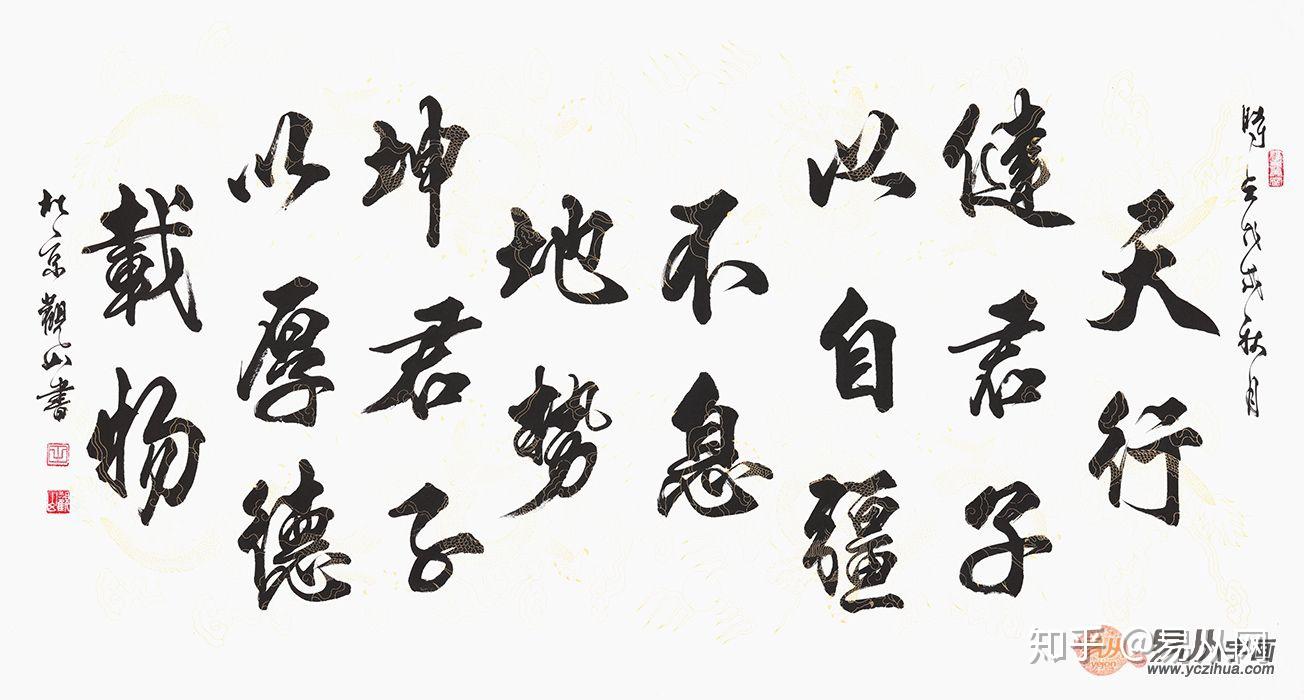 時在戊戌秋月
天行
健君子
以自疆
不息
地勢
坤君子
以厚德
載物
於京觀山書
知乎 @易从网
易从字画
www.yczihua.com